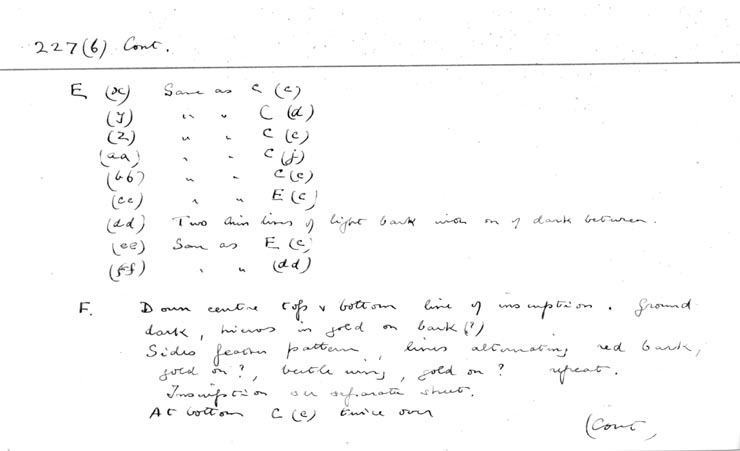 227(6) Cont.
E (x) Same as C (c)
(y) " " C (d)
(z) " " C (c)
(aa) " " C (j)
(bb) " " C (e)
(cc) " " E (c)
(dd) Two thin lines of light bark with on of dark between.
(ee) Same as E (c)
(ff) " " (dd)
F. Down centre top & bottom line of inscription. Ground
dark, hieros in gold on bark (?)
Sides feather pattern, lines alternating red bark,
gold on ?, beetle wing, gold on ? repeat.
Inscription on separate sheet.
At bottom C (e) twice over
(Cont,